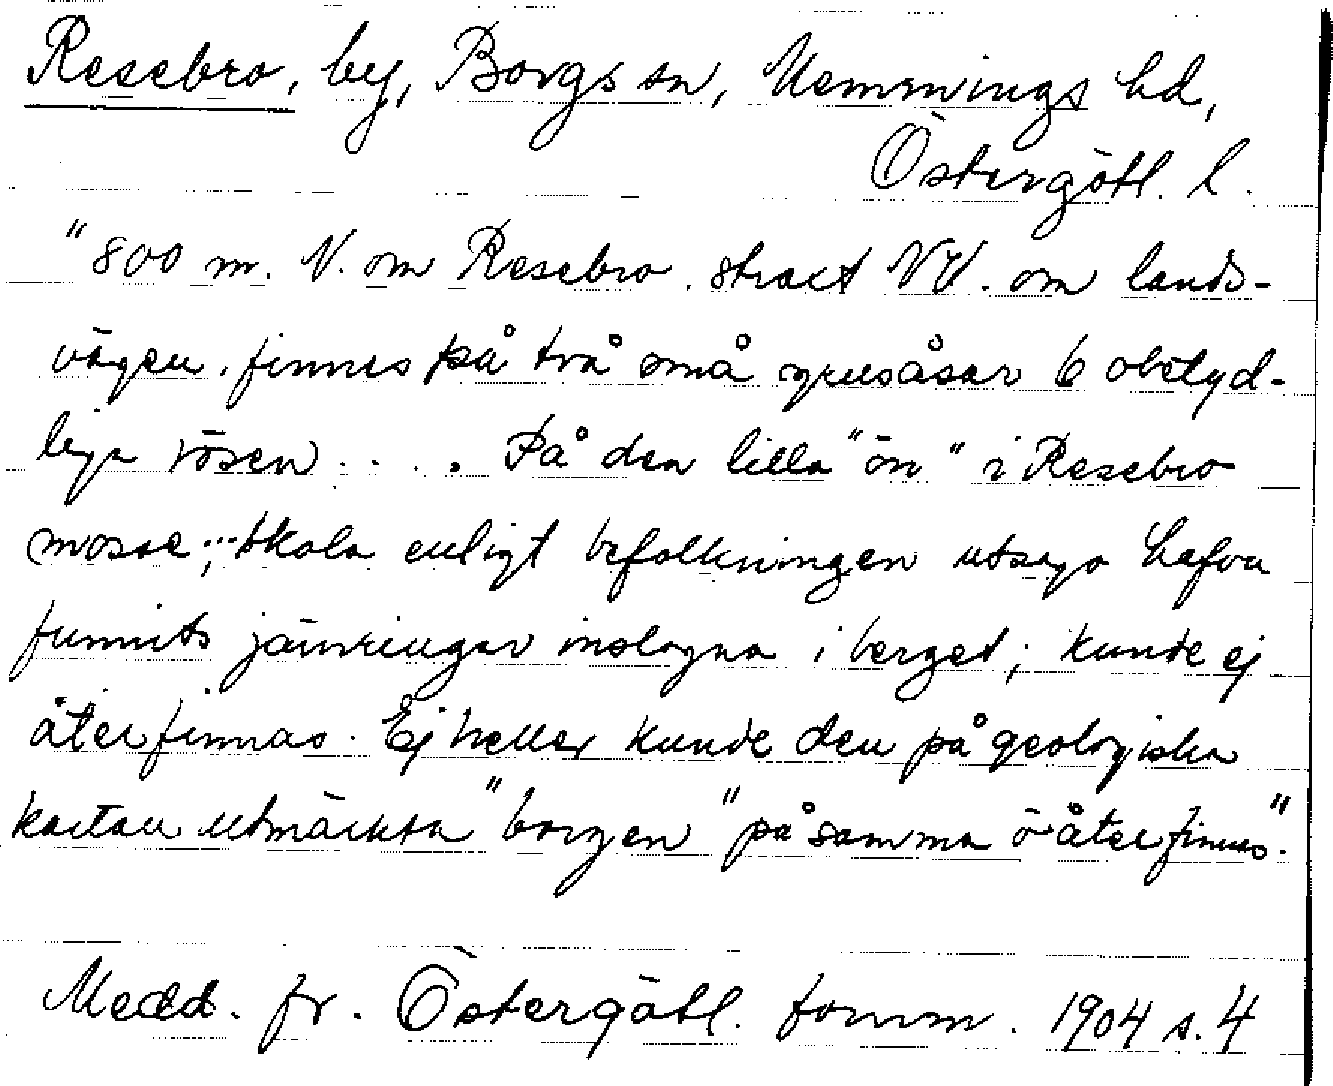 Resebro, by, Borgs sn, Memmings hd,
Östergötl. l.
"800 m. N. om Resebro, strax NV. om lands-
vägen, finnes på två små grusåsar 6 obetyd-
liga rösen . . . . På den lilla "ön" i Resebro
mosse, ... skola enligt befolkningen utsago hafva
funnits järnringar inslagna i berget; kunde ej
återfinnas. Ej heller kunde den på geologiska
kartan utmärkta "borgen" på samma ö återfinnas."
Medd. fr. Östergötl. fornm. 1904 s. 4